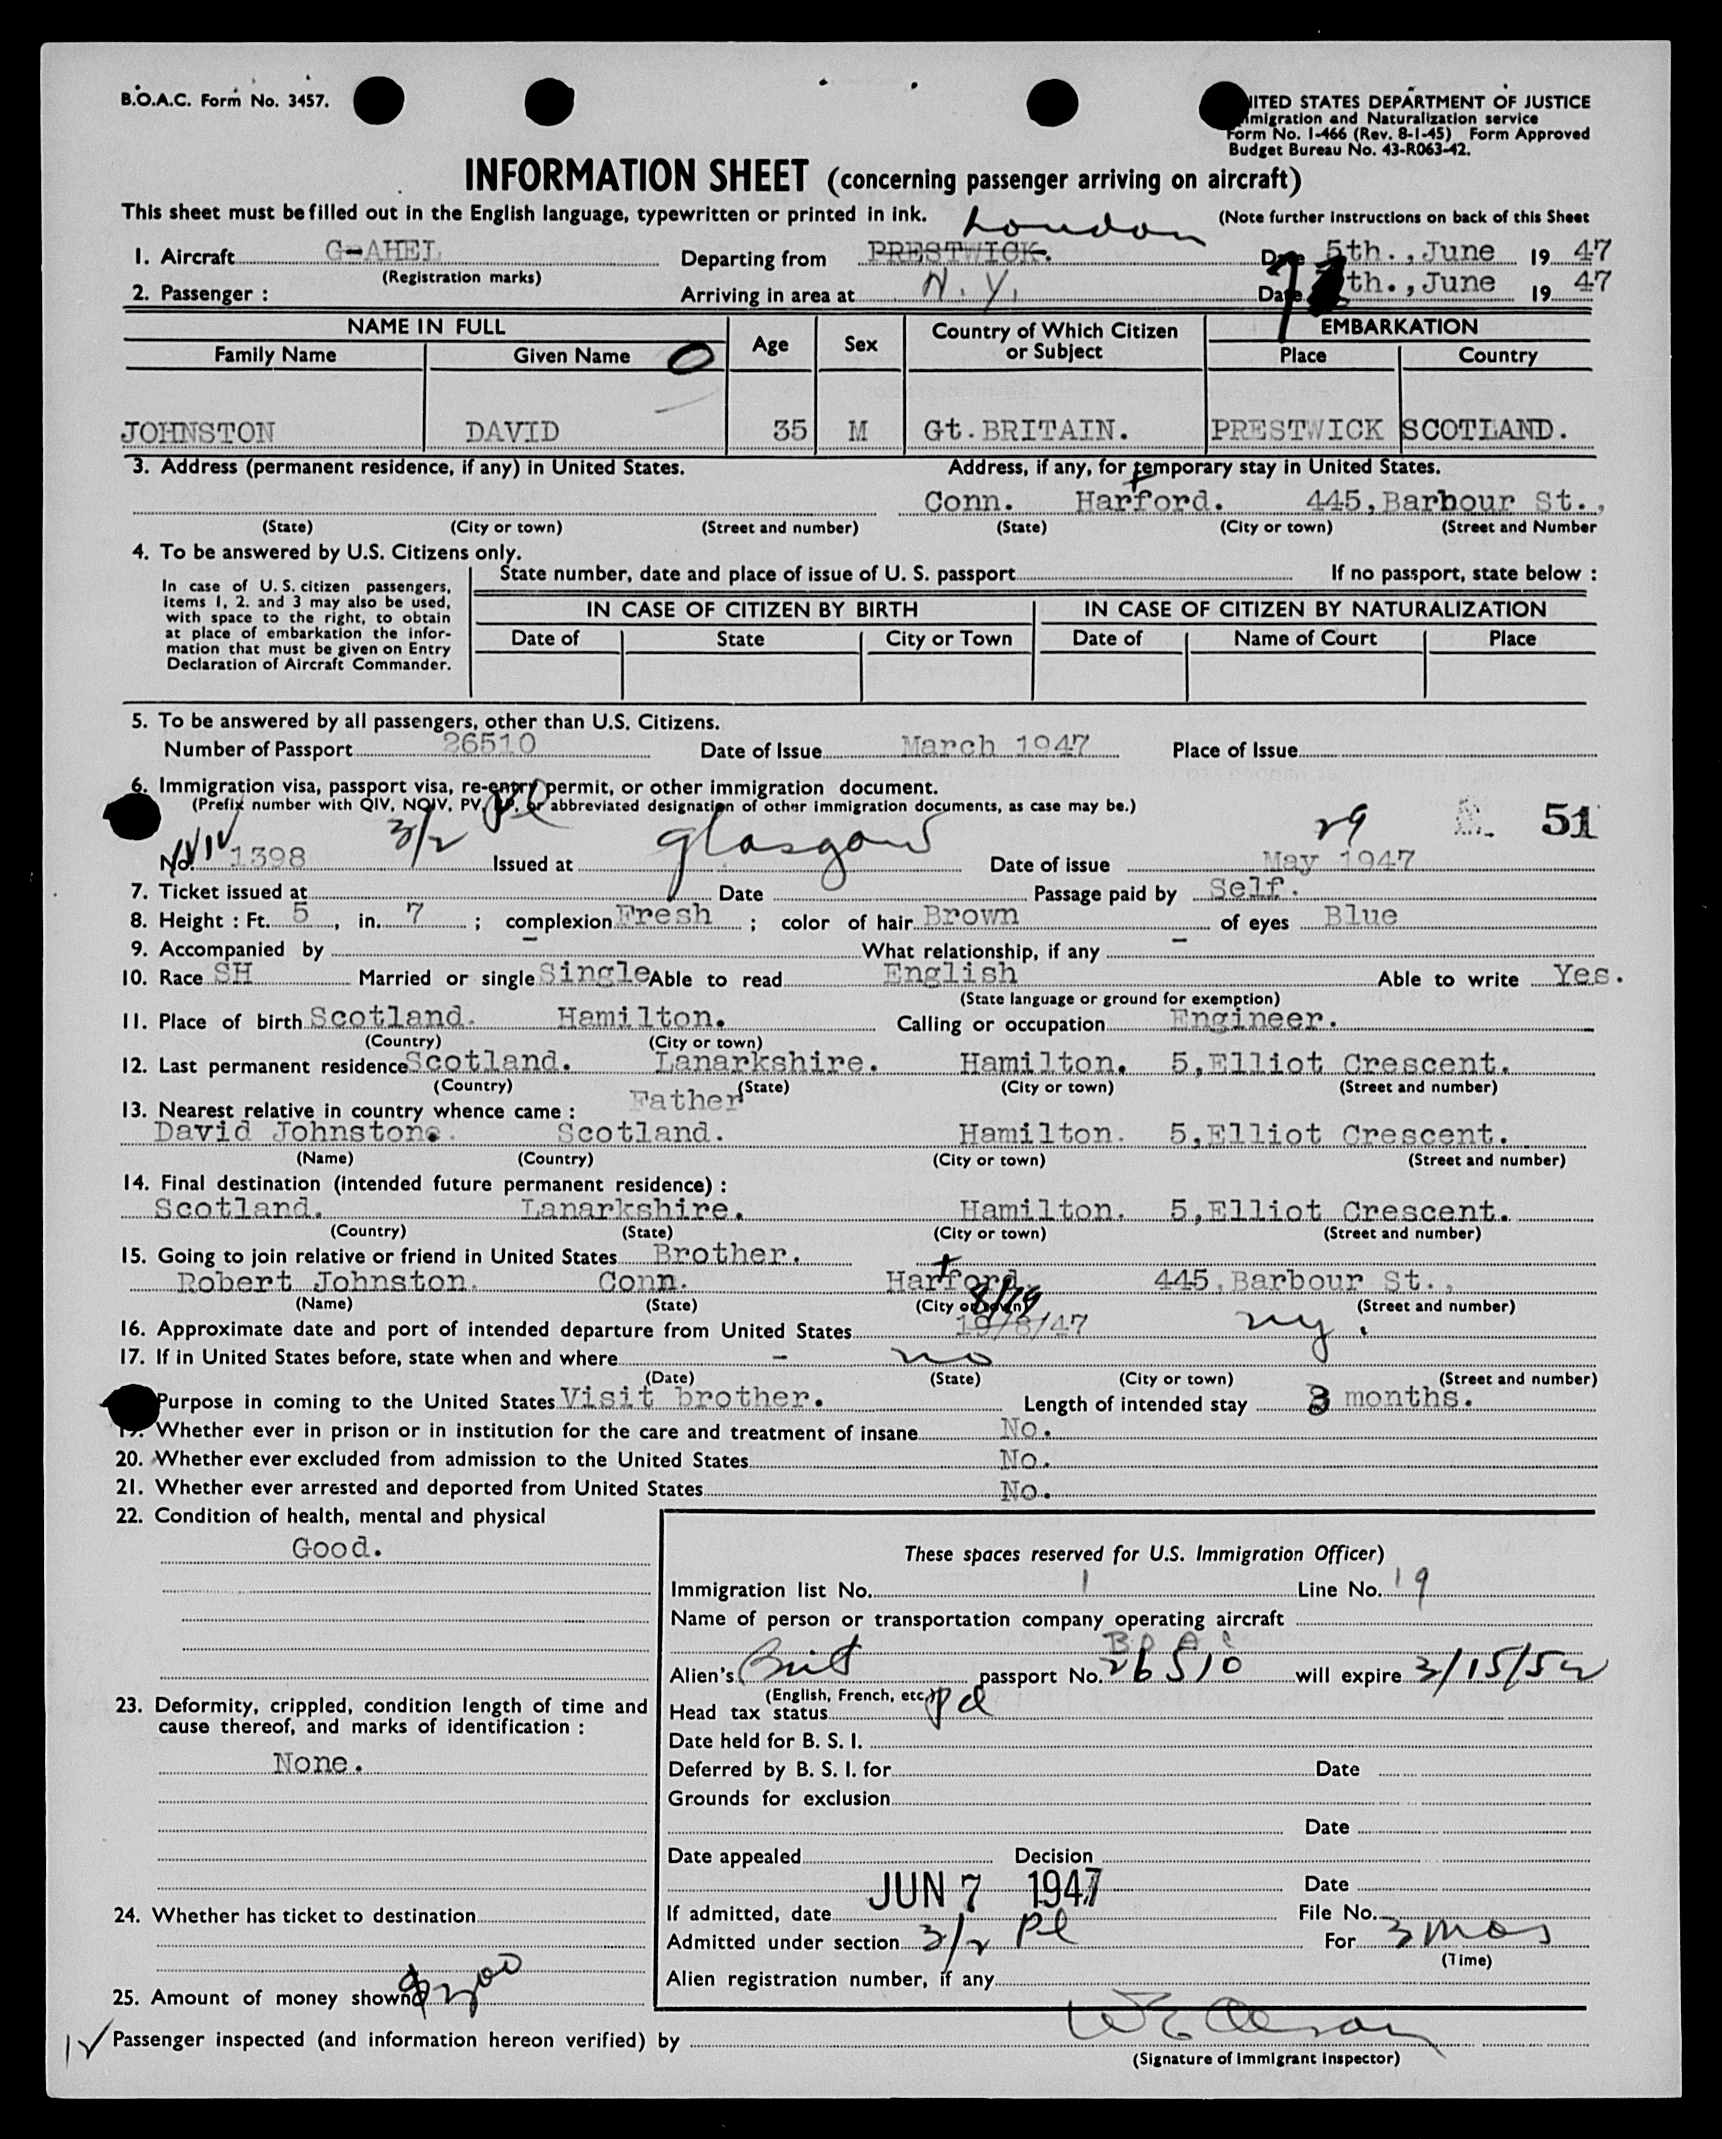 B.O.A.C. Form No. 3457.
UNITED STATES DEPARTMENT OF JUSTICE
Immigration and Naturalization service
Form No. I-466 (Rev. 8-1-45) Form Approved
Budget Bureau No. 43-R063-42.
INFORMATION SHEET (concerning passenger arriving on aircraft)
This sheet must be filled out in the English language, typewritten or printed in ink.
(Note further instructions on back of this Sheet
London
1. Aircraft G-AHEL Departing from PRESTWICK. Date 5th., June 19 47
(Registration marks)
2. Passenger : Arriving in area at N.Y. Date 7th., June 19 47
NAME IN FULL Age Sex Country of Which Citizen or Subject EMBARKATION
Family Name Given Name Place Country
JOHNSTON DAVID 35 M Gt. BRITAIN. PRESTWICK SCOTLAND.
3. Address (permanent residence, if any) in United States. Address, if any, for temporary stay in United States.
Conn. Hartford. 445, Barbour St.,
(State) (City or town) (Street and number) (State) (City or town) (Street and Number
4. To be answered by U.S. Citizens only.
In case of U. S. citizen passengers, items 1, 2. and 3 may also be used, with space to the right, to obtain at place of embarkation the information that must be given on Entry Declaration of Aircraft Commander.
State number, date and place of issue of U. S. passport If no passport, state below :
IN CASE OF CITIZEN BY BIRTH IN CASE OF CITIZEN BY NATURALIZATION
Date of State City or Town Date of Name of Court Place
5. To be answered by all passengers, other than U.S. Citizens.
Number of Passport 26510 Date of Issue March 1947 Place of Issue
6. Immigration visa, passport visa, re-entry permit, or other immigration document.
(Prefix number with QIV, NQIV, PV, RP, or abbreviated designation of other immigration documents, as case may be.)
3/2 Pl 29 51
No. 1398 Issued at Glasgow Date of issue May 1947
7. Ticket issued at Date Passage paid by Self.
8. Height : Ft. 5, in. 7 ; complexion Fresh ; color of hair Brown of eyes Blue
9. Accompanied by - What relationship, if any -
10. Race SH Married or single Single Able to read English Able to write Yes.
(State language or ground for exemption)
11. Place of birth Scotland. Hamilton. Calling or occupation Engineer.
(Country) (City or town)
12. Last permanent residence Scotland. Lanarkshire. Hamilton. 5, Elliot Crescent.
(Country) (State) (City or town) (Street and number)
13. Nearest relative in country whence came : Father
David Johnston. Scotland. Hamilton. 5, Elliot Crescent.
(Name) (Country) (City or town) (Street and number)
14. Final destination (intended future permanent residence) :
Scotland. Lanarkshire. Hamilton. 5, Elliot Crescent.
(Country) (State) (City or town) (Street and number)
15. Going to join relative or friend in United States Brother.
Robert Johnston. Conn. Hartford. 445, Barbour St.,
(Name) (State) (City or town) (Street and number)
16. Approximate date and port of intended departure from United States 19/8/47 ny.
17. If in United States before, state when and where - no
(Date) (State) (City or town) (Street and number)
Purpose in coming to the United States Visit brother. Length of intended stay 3 months.
19. Whether ever in prison or in institution for the care and treatment of insane No.
20. Whether ever excluded from admission to the United States No.
21. Whether ever arrested and deported from United States No.
22. Condition of health, mental and physical
Good.
These spaces reserved for U.S. Immigration Officer)
Immigration list No. 1 Line No. 19
Name of person or transportation company operating aircraft
B O A C
Alien's Brit passport No. 26510 will expire 3/15/52
(English, French, etc.)
23. Deformity, crippled, condition length of time and cause thereof, and marks of identification :
None.
Head tax status pd
Date held for B. S. I.
Deferred by B. S. I. for Date
Grounds for exclusion
Date
Date appealed Decision
Date
JUN 7 1947
24. Whether has ticket to destination
If admitted, date File No.
Admitted under section 3/2 Pl For 3 mos
(Time)
Alien registration number, if any
25. Amount of money shown $200
Passenger inspected (and information hereon verified) by
(Signature of Immigrant Inspector)